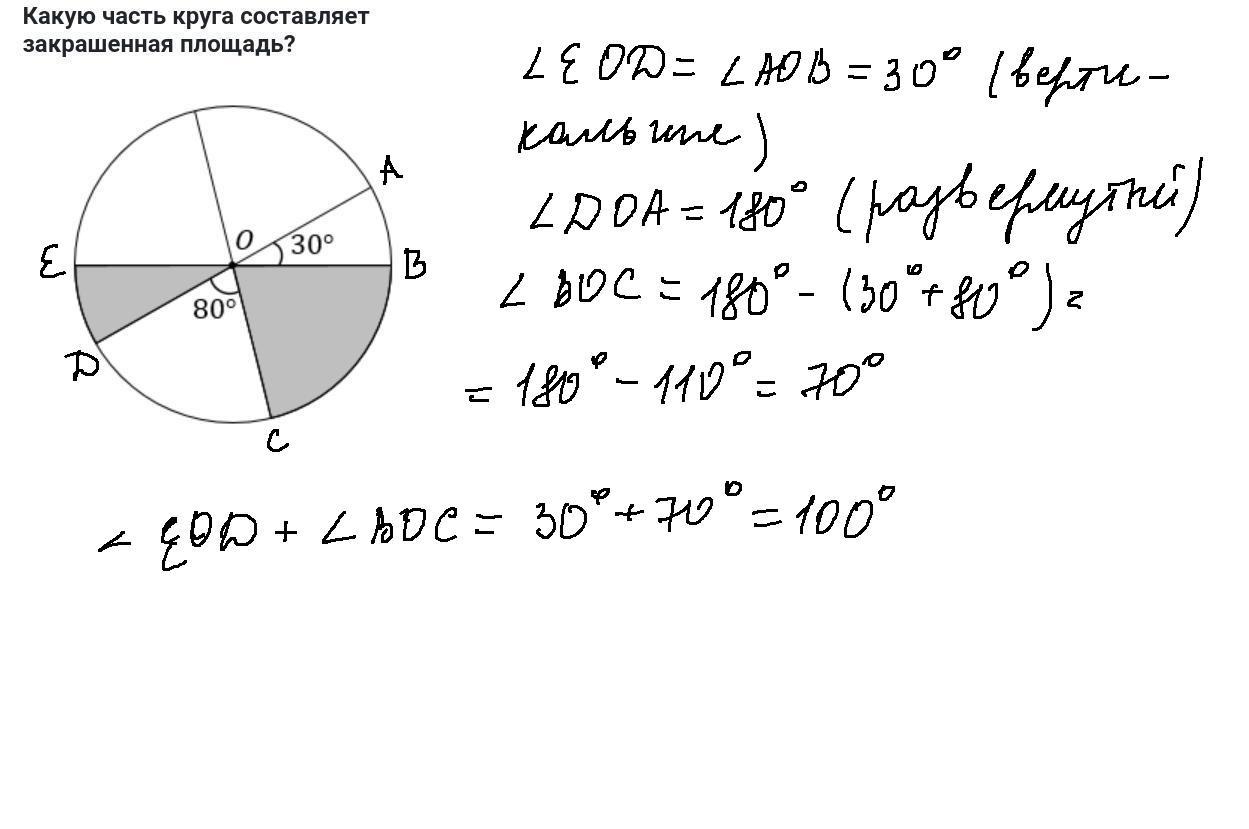 Какую часть круга составляет
закрашенная площадь?
∠EOD = ∠AOB = 30° (верти-
кальные)
∠DOA = 180° (развернутый)
∠BOC = 180° - (30° + 80°) =
= 180° - 110° = 70°
A
E
O
30°
B
80°
D
C
∠EOD + ∠BOC = 30° + 70° = 100°